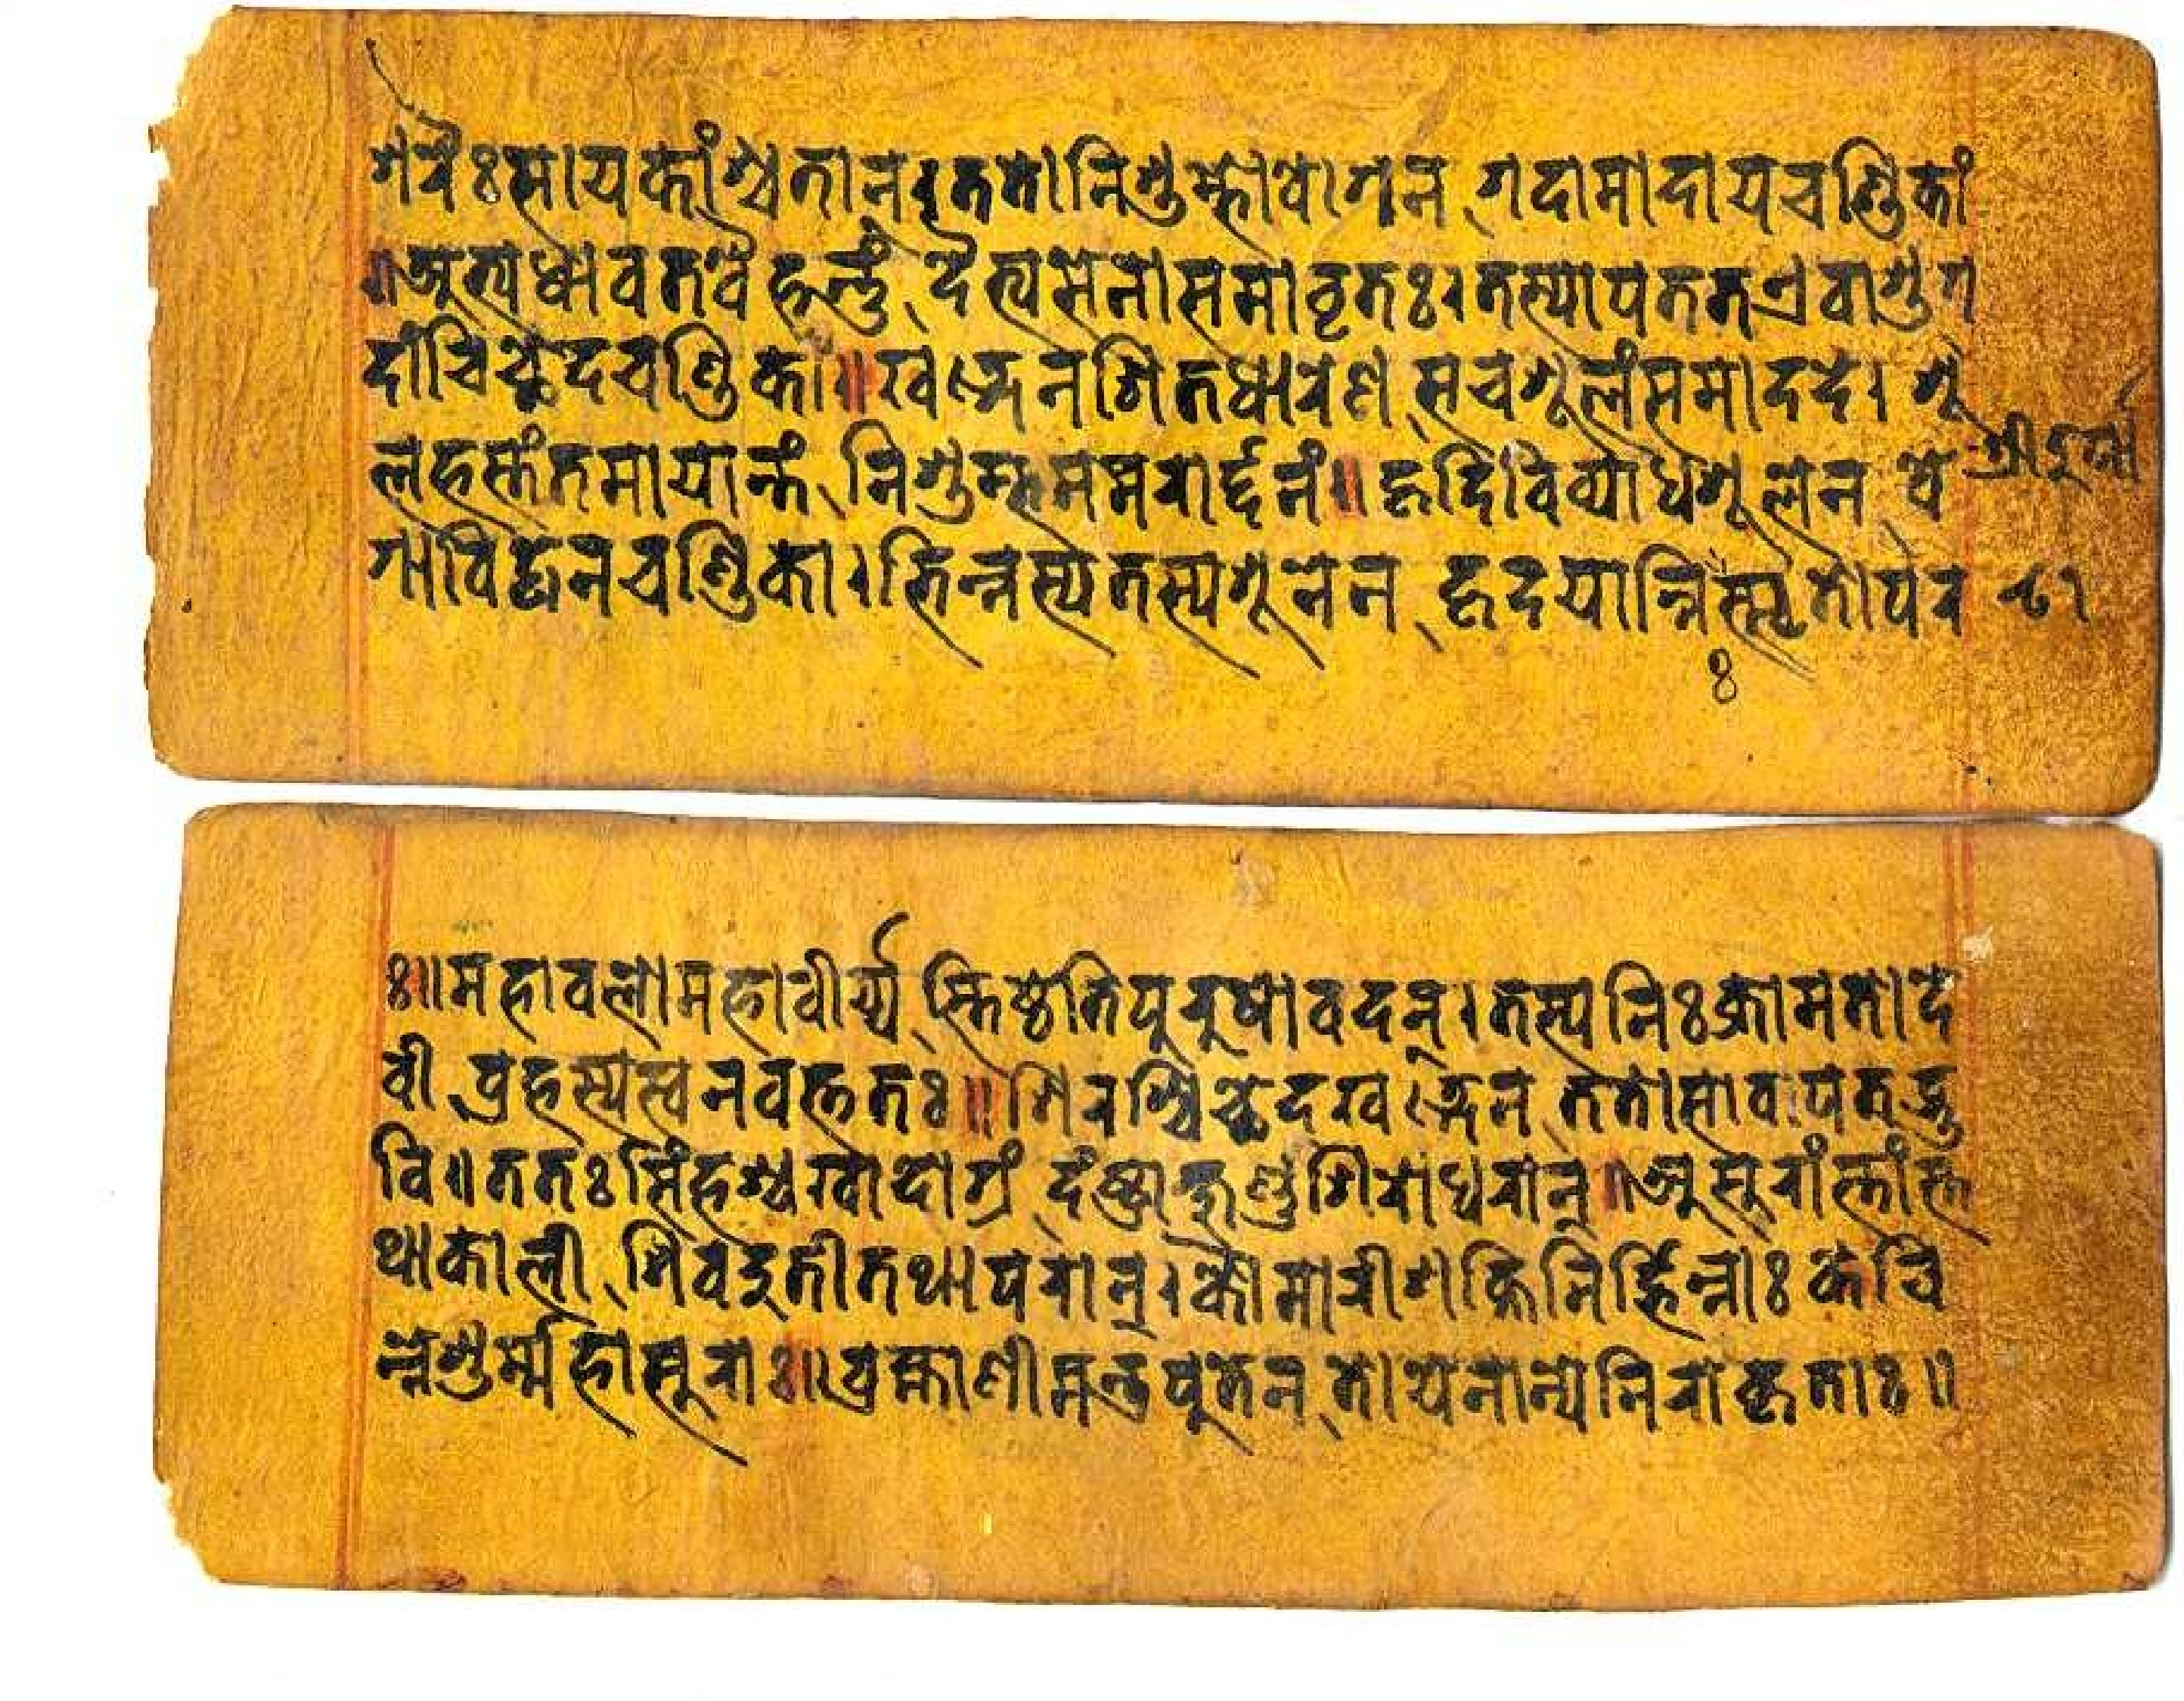 शरैःसायकांश्चतान्।ततोनिशुम्भोवेगेन गदामादायचण्डिकां
॥अभ्यधावतवैहन्तुं दैत्यसेनासमावृतः।तस्यापततएवाशुग
दांचिच्छेदचण्डिका॥खड्गेनशितधारेण सचशूलंसमाददे। शू
लहस्तंतमायान्तं निशुम्भममरार्द्दनं॥हृदिविव्याधशूलेन वे
श्रीदुर्गा
गाविद्धेनचण्डिका।भिन्नस्यतस्यशूलेन हृदयान्निस्सृतोपर
८१
ः
ः॥महावलोमहावीर्य्य स्तिष्ठेतिपुरुषोवदन्।तस्यनिःक्रामतोदे
वी प्रहस्यस्वनवत्ततः॥शिरश्चिच्छेदखड्गेन ततोसावपतद्भु
वि॥ततःसिंहश्चखादोग्रं दंष्ट्राक्षुण्णशिरोधरान्॥असुरांस्तांस्त
थाकाली शिवदूतीतथापरान्।कौमारीशक्तिनिर्भिन्नाः केचि
न्नेशुर्म्महासुराः॥ब्रह्माणीमन्त्रपूतेन तोयेनान्येनिराकृताः॥